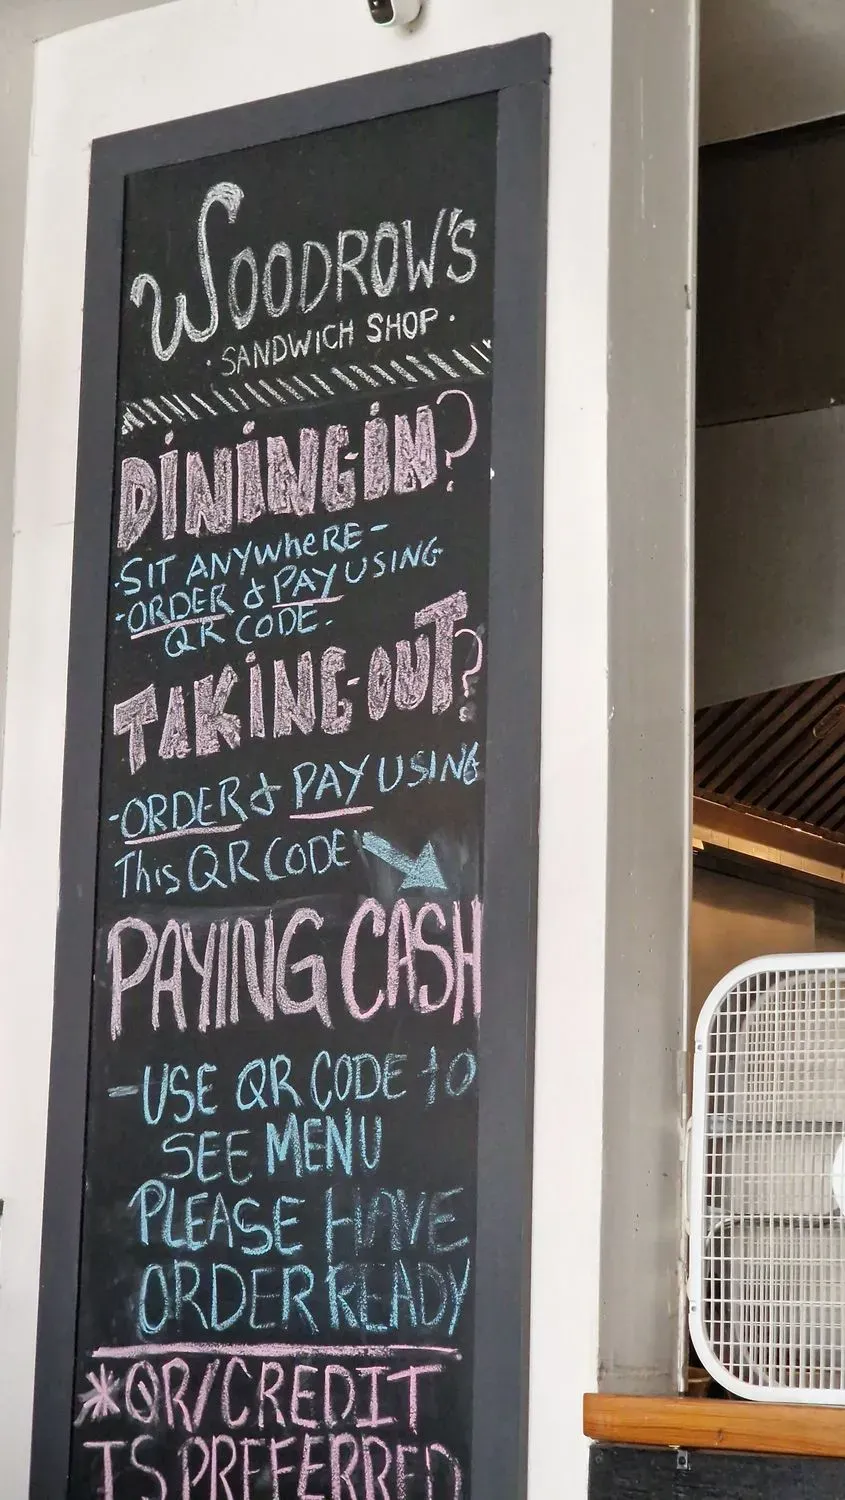 WOODROW'S
· SANDWICH SHOP ·
DINING-IN?
-SIT ANYWHERE-
-ORDER & PAY USING
QR CODE.
TAKING-OUT?
-ORDER & PAY USING
This QR CODE
PAYING CASH
-USE QR CODE to
SEE MENU
PLEASE HAVE
ORDER READY
*QR/CREDIT
IS PREFERRED